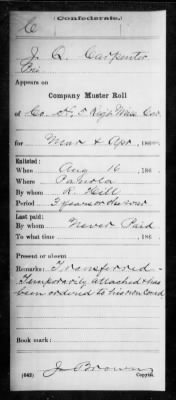 (Confederate.)
C
J. Q. Carpenter
Appears on
Company Muster Roll
of Co.
for Mar & Apr, 186
Enlisted:
When Aug 16, 186
Where Panola
By whom R. Hill
Period 3 years or the war
Last paid:
By whom Never Paid
To what time , 186
Present or absent
Remarks: Transferred -
Temporarily attached & has
been ordered to his own Comd
Book mark:
J. Brown
(642) Copyist.